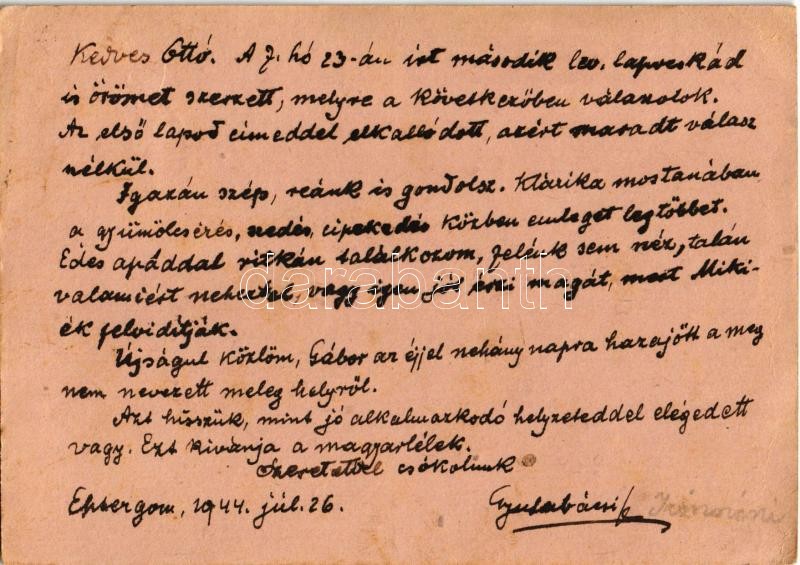 Kedves Ottó. A f. hó 23-án írt második lev. lapocskád
is örömet szerzett, melyre a következőben válaszolok.
Az első lapod címeddel elkallódott, azért maradt válasz
nélkül.
Igazán szép, reánk is gondolsz. Klárika mostanában
a gyümölcsérés, szedés, cipekedés közben emleget legtöbbet.
Édes apáddal ritkán találkozom, felénk sem néz, talán
valamiért neheztel, vagy igen jól érzi magát, mert Miki-
ék felvidítják.
Újságul közlöm, Gábor az éjjel néhány napra hazajött a meg
nem nevezett meleg helyről.
Azt hisszük, mint jó alkalmazkodó helyzeteddel elégedett
vagy. Ezt kivánja a magyarlélek.
Szeretettel csókolunk
Esztergom, 1944. júl. 26.
Gyulabácsi
darabanth